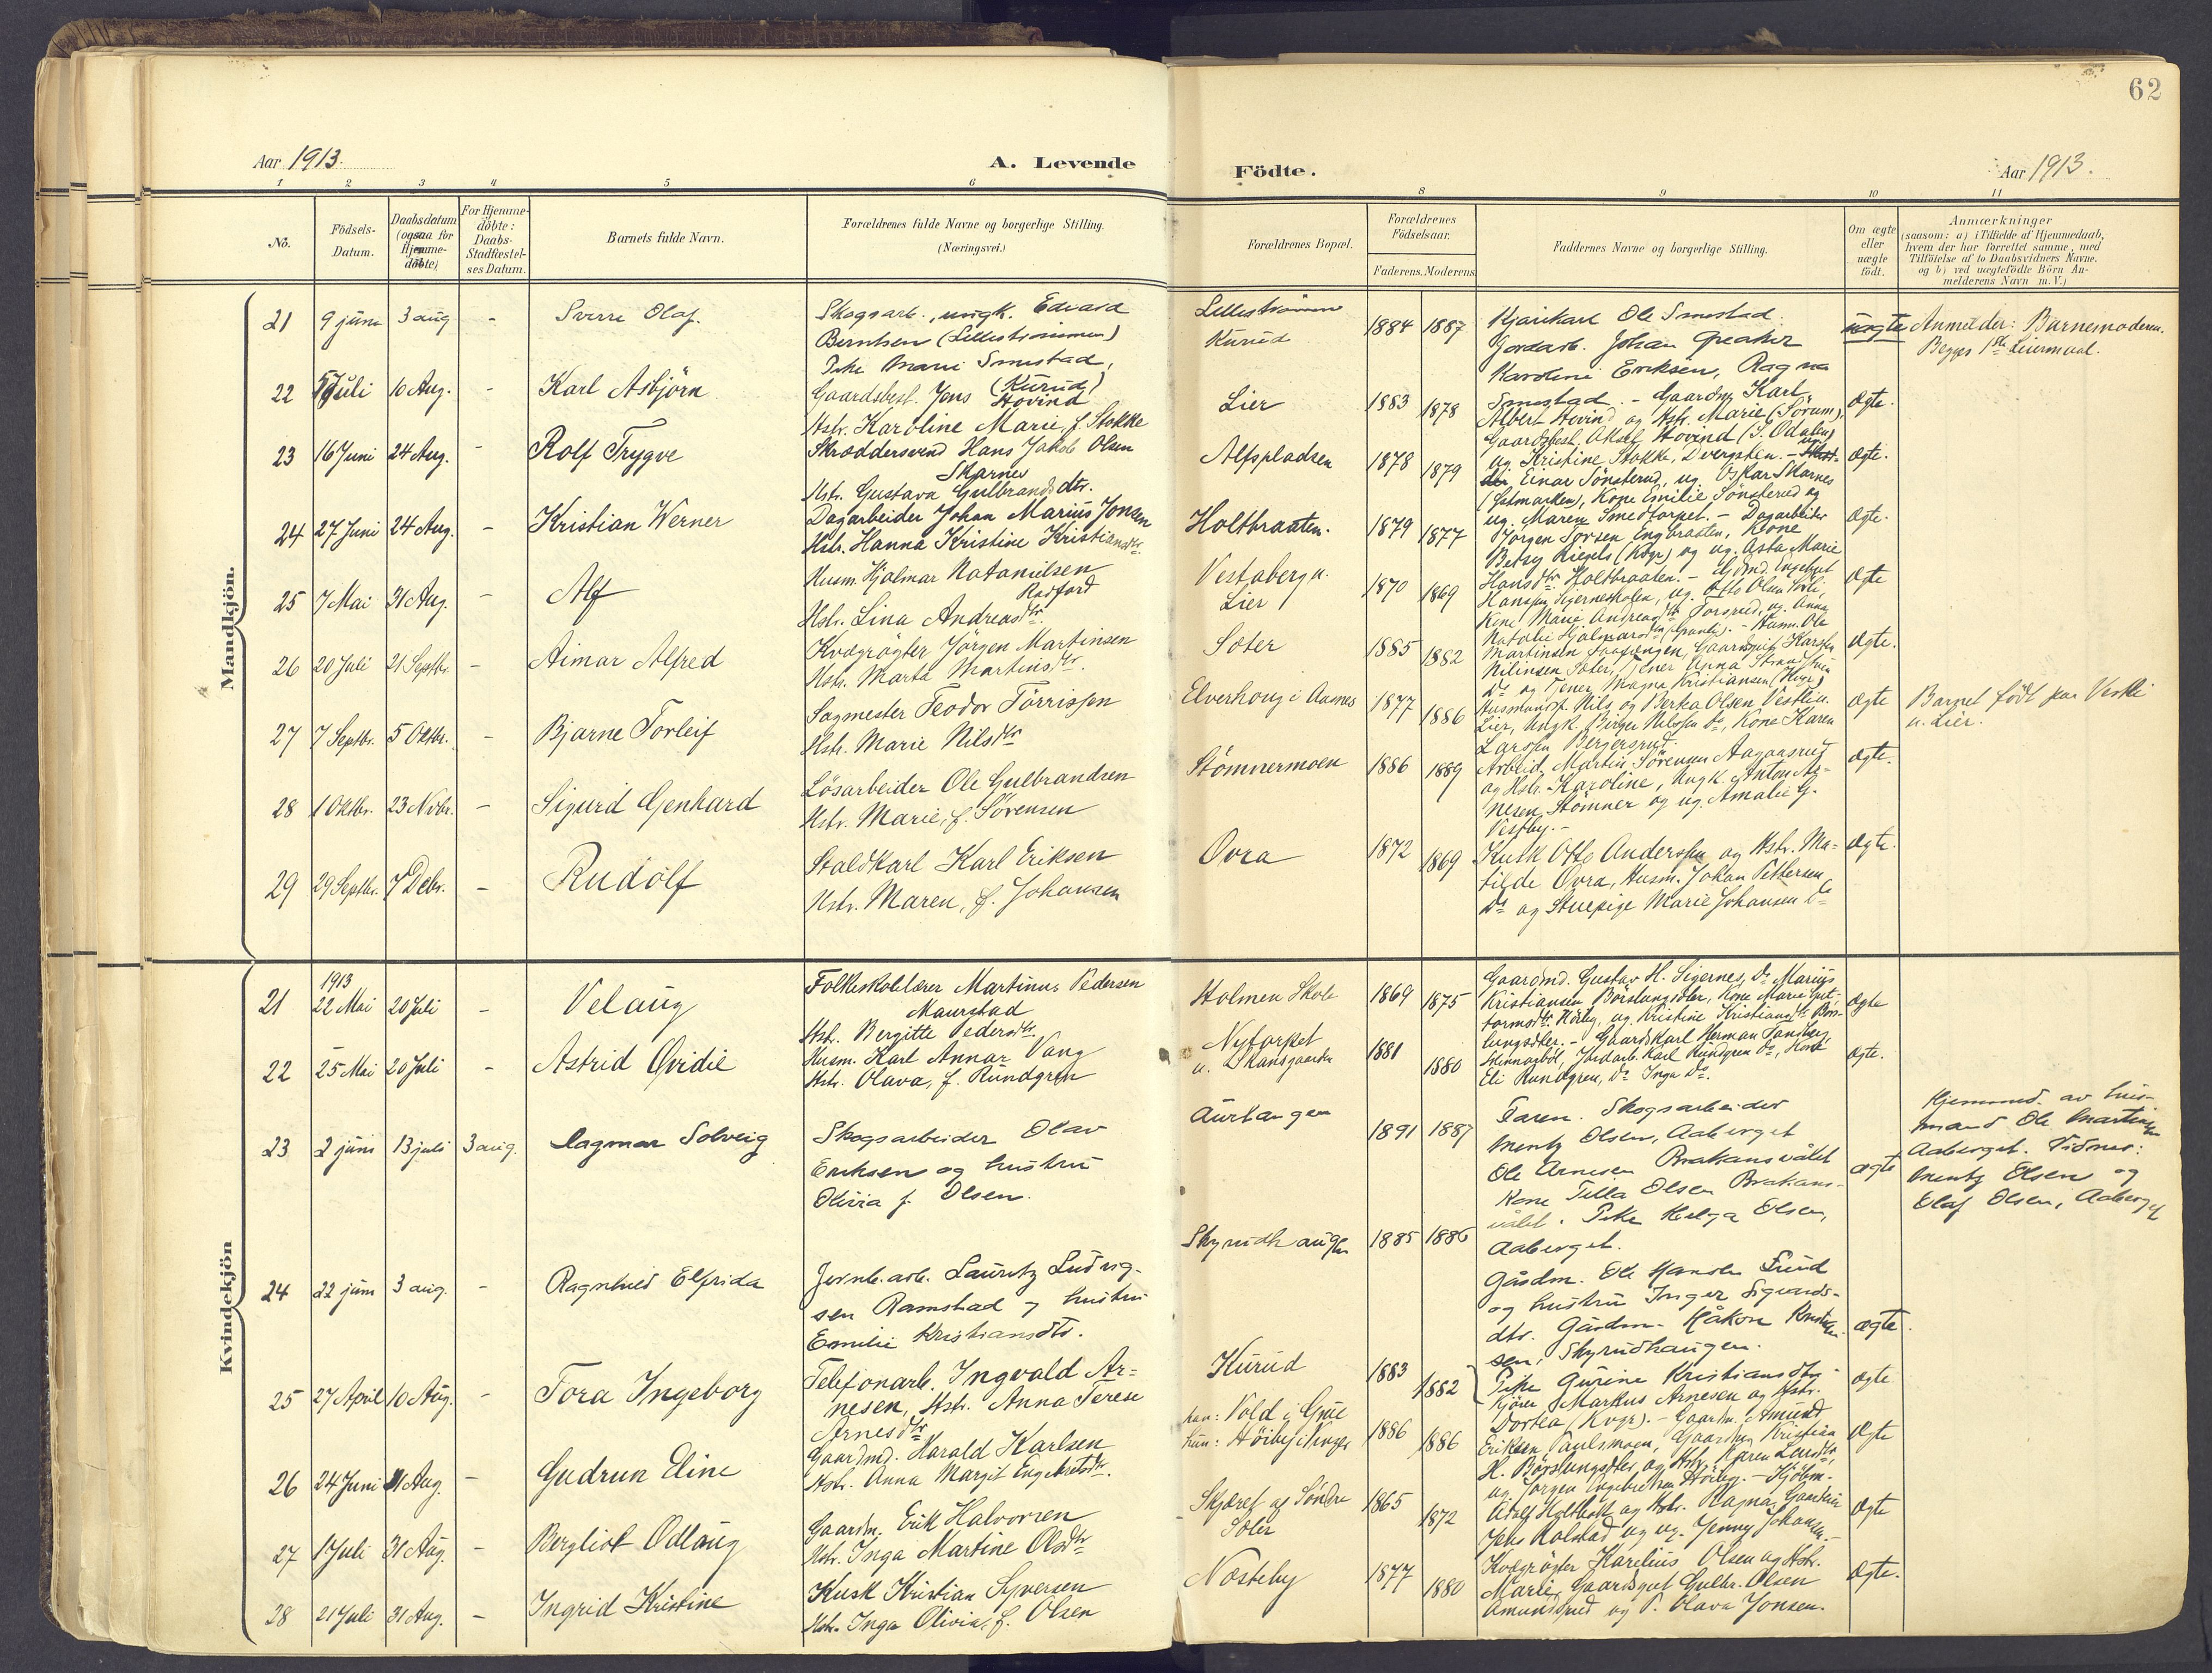 62
Aar 1913.
A. Levende
Födte.
Aar 1913.
1 2 3 4 5 6 8 9 10 11
No.
Födsels-
Datum.
Daabsdatum
(ogsaa for
Hjemme-
döbte)
For Hjemme-
döbte:
Daabs-
Stadfæstel-
ses Datum.
Barnets fulde Navn.
Forældrenes fulde Navne og borgerlige Stilling.
(Næringsvei.)
Forældrenes Bopæl.
Forældrenes
Födselsaar.
Faderens. Moderens.
Faddernes Navne og borgerlige Stilling.
Om ægte
eller
uægte
födt.
Anmærkninger
(saasom: a) i Tilfælde af Hjemmedaab,
hvem der har forrettet samme, med
Tilföielse af to Daabsvidners Navne.
og b) ved uægtefödte Börn An-
melderens Navn m. V.)
Mandkjön.
21 9 juni 3 aug - Sverre Olaf.
Skogsarb., ungk. Edvard
Berntsen (Lillestrømmen)
Pike Marie Smestad,
(Kurud)
Lillestrømmen
Kurud
1884 1887
Kjørekarl Ole Smestad.
Jordarb. Johan Greaker
Karoline Eriksen, Ragna
Smestad. -
uægte
Anmelder: Barnemoderen.
Begges 1ste Leiermaal.
22 5 Juli 10 Aug. - Karl Asbjörn
Gaardsbest. Jens Hovind
Hstr. Karoline Marie, f. Stokke
Lier
1883 1878
Gaardm. Karl
Albert Hovind og Hstr. Marie (Sörum),
Gaardsbest. Aksel Hovind (S. Odalen)
og Kristine Stokke, Dvergsten. -
Ægte.
23 16 Juni 24 Aug. - Rolf Trygve
Skræddersvend Hans Jakob Olsen
Skarnes
Hstr. Gustava Gulbrandsdtr.
Alfspladsen
1878 1879
Einar Sönsterud, ug. Oskar Skarnes
(Østmarken), Kone Emilie Sönsterud og
ug. Maren Smedtorpet. -
Ægte.
24 27 Juni 24 Aug. - Kristian Werner
Dagarbeider Johan Marius Jonsen
Hstr. Hanna Kristine Kristiansdtr.
Holtbraaten.
1879 1877
Dagarbeider
Jörgen Sørsen Engbraaten, Kone
Betsy Riegels (Kvgr) og ug. Asta Marie
Hansdtr Holtbraaten. -
Ægte.
25 7 Mai 31 Aug. - Alf
Husm. Hjalmar Natanielsen
Rodford
Hstr. Lina Andreasdtr.
Vestaberg u.
Lier
1870 1869
Hansen Sigerneskolen, ug. Otto Olsen
Kone Marie Andreasdtr Forsrud, ug. Anna
Natalie Hjalmarsdtr
Ægte
26 20 Juli 21 Septbr. - Aimar Alfred
Kvægrögter Jörgen Martinsen
Hstr. Marta Martinsdtr.
Soter
1885 1882
Husm. Ole
Martinsen Gaardsgut Karsten
Nilinsen Soter, Tjener Anna
Do og Tjener Magna Kristiansen (Kvgr)
Ægte.
27 7 Septbr. 5 Oktbr. - Bjarne Torleif
Sagmester Teodor Törrissen
Hstr. Marie Nilsdtr
Elverhoug i Aasnes
1877 1886
Husmandsf. Nils og Berta Olsen Vestli u.
Lier, Ungk. Birger Nilssen do, Kone Karen
Larssen Bergersrud.
Ægte
Barnet födt paa Vestli
u. Lier.
28 1 Oktbr. 23 Novbr. - Sigurd Genhard
Lösarbeider Ole Gulbrandsen
Hstr. Marie, f. Sörensen
Stömnermoen
1886 1889
Arbeid. Martin Sörensen Aagaasrud
og Hstr. Karoline, Ungk. Anton Ar-
nesen Stömner og ug. Amalie G.
Vestby. -
Ægte.
29 29 Septbr. 7 Debr. - Rudolf
Staldkarl Karl Eriksen
Hstr. Maren, f. Johansen
Ovra
1872 1869
Kusk Otto Anderssen og Hstr. Ma-
tilde Ovra, Husm. Johan Pettersen
Do og Stuepige Marie Johansen do
Ægte.
Kvindekjön
1913
21 22 Mai 20 Juli - Velaug
Folkeskolelærer Martinus Pedersen
Maurstad
Hst. Bergitte Pedersdtr.
Holmen Skole
1869 1875
Gaardmd. Gustav H. Sigernes, Do Marius
Kristiansen Börslungsdtr, Kone Marie Gut-
tormsdtr. Höiby, ug. Kristine Kristiansdtr Börs-
lungsdtr. -
Ægte
22 25 Mai 20 Juli - Astrid Ovidie
Husm. Karl Annar Vang
Hstr. Olava, f. Rundgren
Nytorpet
u. Skansgaarden
1881 1880
Gaardskarl Herman Tandberg
Skinnarböl, Jordarb. Karl Rundgren do, Kone
Eli Rundgren, do Inga do.
Ægte.
23 2 juni 13 juli 3 aug. Dagmar Solveig
Skogsarbeider Olav
Eriksen og hustru
Olivia f. Olsen.
Aurtangen
1891 1887
Faren. Skogsarbeider
Mentz Olsen, Aaberget
Ole Arnesen Bratansvålet
Kone Tilla Olsen Bratans-
vålet. Pike Helga Olsen,
Aaberget.
ægte
Hjemmed. av hus-
mand Ole Martinsen
Aaberget. Vidner:
Mentz Olsen og
Olaf Olsen, Aaberget
24 22 juni 3 aug. - Ragnhild Elfrida
Jernb.arb. Lauritz Ludvig-
sen Ramstad og hustru
Emilie Kristiansdtr.
Skyrudhaugen
1885 1886
Gårdm. Ole Hansen Lund
og hustru Inger Sigvards-
dtr. Gårdm. Håkon Kristian-
sen, Skyrudhaugen.
Pike Gurine Kristiansdtr
ægte.
25 27 April 10 Aug. - Tora Ingeborg
Telefonarb. Ingvald Ar-
nesen, Hstr. Anna Terese
Arnesdtr
Kurud
1883 1882
Kjörer Markus Arnesen og Hstr.
Dortea (Kvgr). -
ægte
26 24 Juni 31 Aug. - Gudrun Eline
Gaardmd. Harald Karlsen
Hstr. Anna Margit Engebretsdtr.
han: Vold i Grue
hun: Höiby i Vinger
1886 1886
Gaardm. Amund
Eriksen Paulsmoen, Gaardm. Kristian
H. Börslungsdtr, og Hstr. Karen
og Jörgen Engebretsen Höiby. -
Ægte
27 1 Juli 31 Aug. - Bergliot Odlaug
Gaardm. Erik Halvorsen
Hstr. Inga Martine Olsdtr
Skjæret af Söndre
Soter
1865 1872
Adolf Holtbakk og Hstr. Ragna, Gaardm.
Jens Rolstad og ug. Jenny Johansen. -
Ægte
28 21 Juli 31 Aug. - Ingrid Kristine
Kusk Kristian Syversen
Hstr. Inga Olivia, f. Olsen
Nosteby
1877 1880
Kvægrögter Karelius Olsen og Hstr.
Marie, Gaardsgut Gulbr. Olsen
Amundsrud og P. Olava Jonsen.
Ægte.